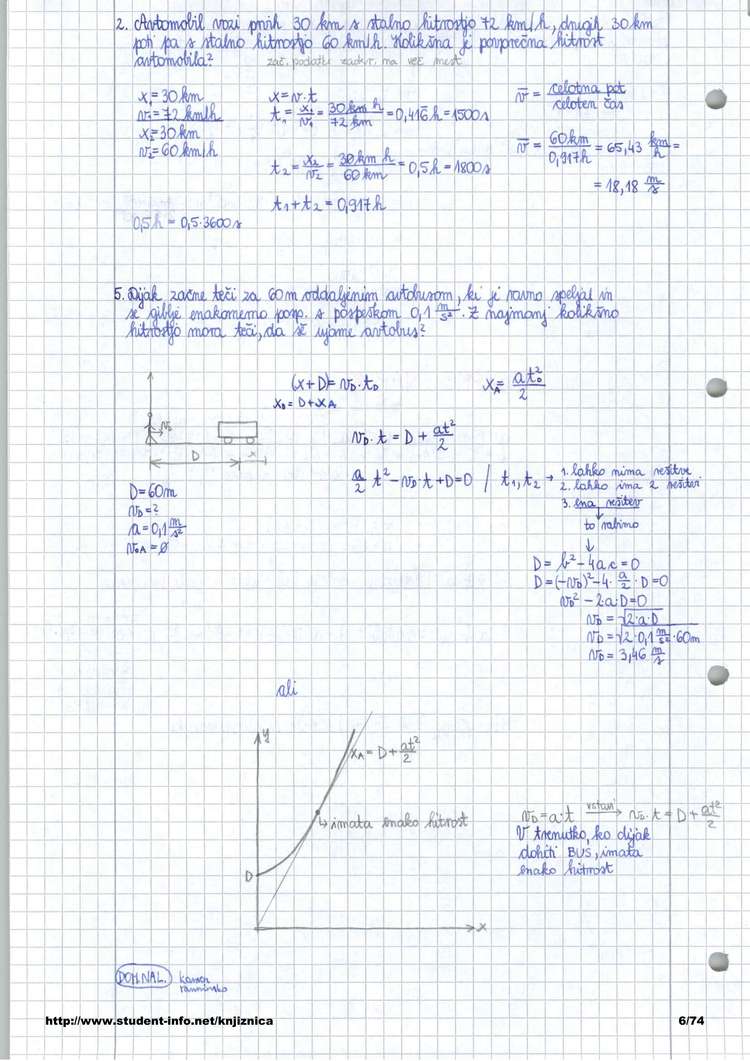 2. Avtomobil vozi prvih 30 km s stalno hitrostjo 72 km/h, drugih 30 km
poti pa s stalno hitrostjo 60 km/h. Kolikšna je povprečna hitrost
avtomobila? zač. podatki zaokr. na več mest.
x₁=30km
v₁=72km/h
x₂=30km
v₂=60km/h
0,5h = 0,5·3600s
x=v·t
t₁ = x₁/v₁ = 30km h/72 km = 0,416̄ h = 1500s
t₂ = x₂/v₂ = 30km h/60 km = 0,5h = 1800s
t₁+t₂ = 0,917h
v̄ = celotna pot/celoten čas
v̄ = 60km/0,917h = 65,43 km/h =
= 18,18 m/s
5. Dijak začne teči za 60m oddaljenim avtobusom, ki je ravno speljal in
se giblje enakomerno posp. s pospeškom 0,1 m/s². Z najmanj kolikšno
hitrostjo mora teči, da še ujame avtobus?
v_D
D
x
D=60m
v_D=?
a=0,1 m/s²
v₀A=∅
(x+D)=v_D·t_D
x_D = D+x_A
x_A = at_D²/2
v_D·t = D + at²/2
a/2 t² - v_D·t + D = 0 / t₁, t₂ → 1. lahko nima rešitve
2. lahko ima 2 rešitvi
3. ena rešitev
to rabimo
D = b² - 4a·c = 0
D = (-v_D)² - 4· a/2 ·D = 0
v_D² - 2·a·D = 0
v_D = √2·a·D
v_D = √2·0,1 m/s²·60m
v_D = 3,46 m/s
ali
y
x_A = D + at²/2
↳ imata enako hitrost
D
x
v_D = a·t vstavi → v_D·t = D + at²/2
V trenutko, ko dijak
dohiti BUS, imata
enako hitrost
DOM.NAL.
http://www.student-info.net/knjiznica
6/74